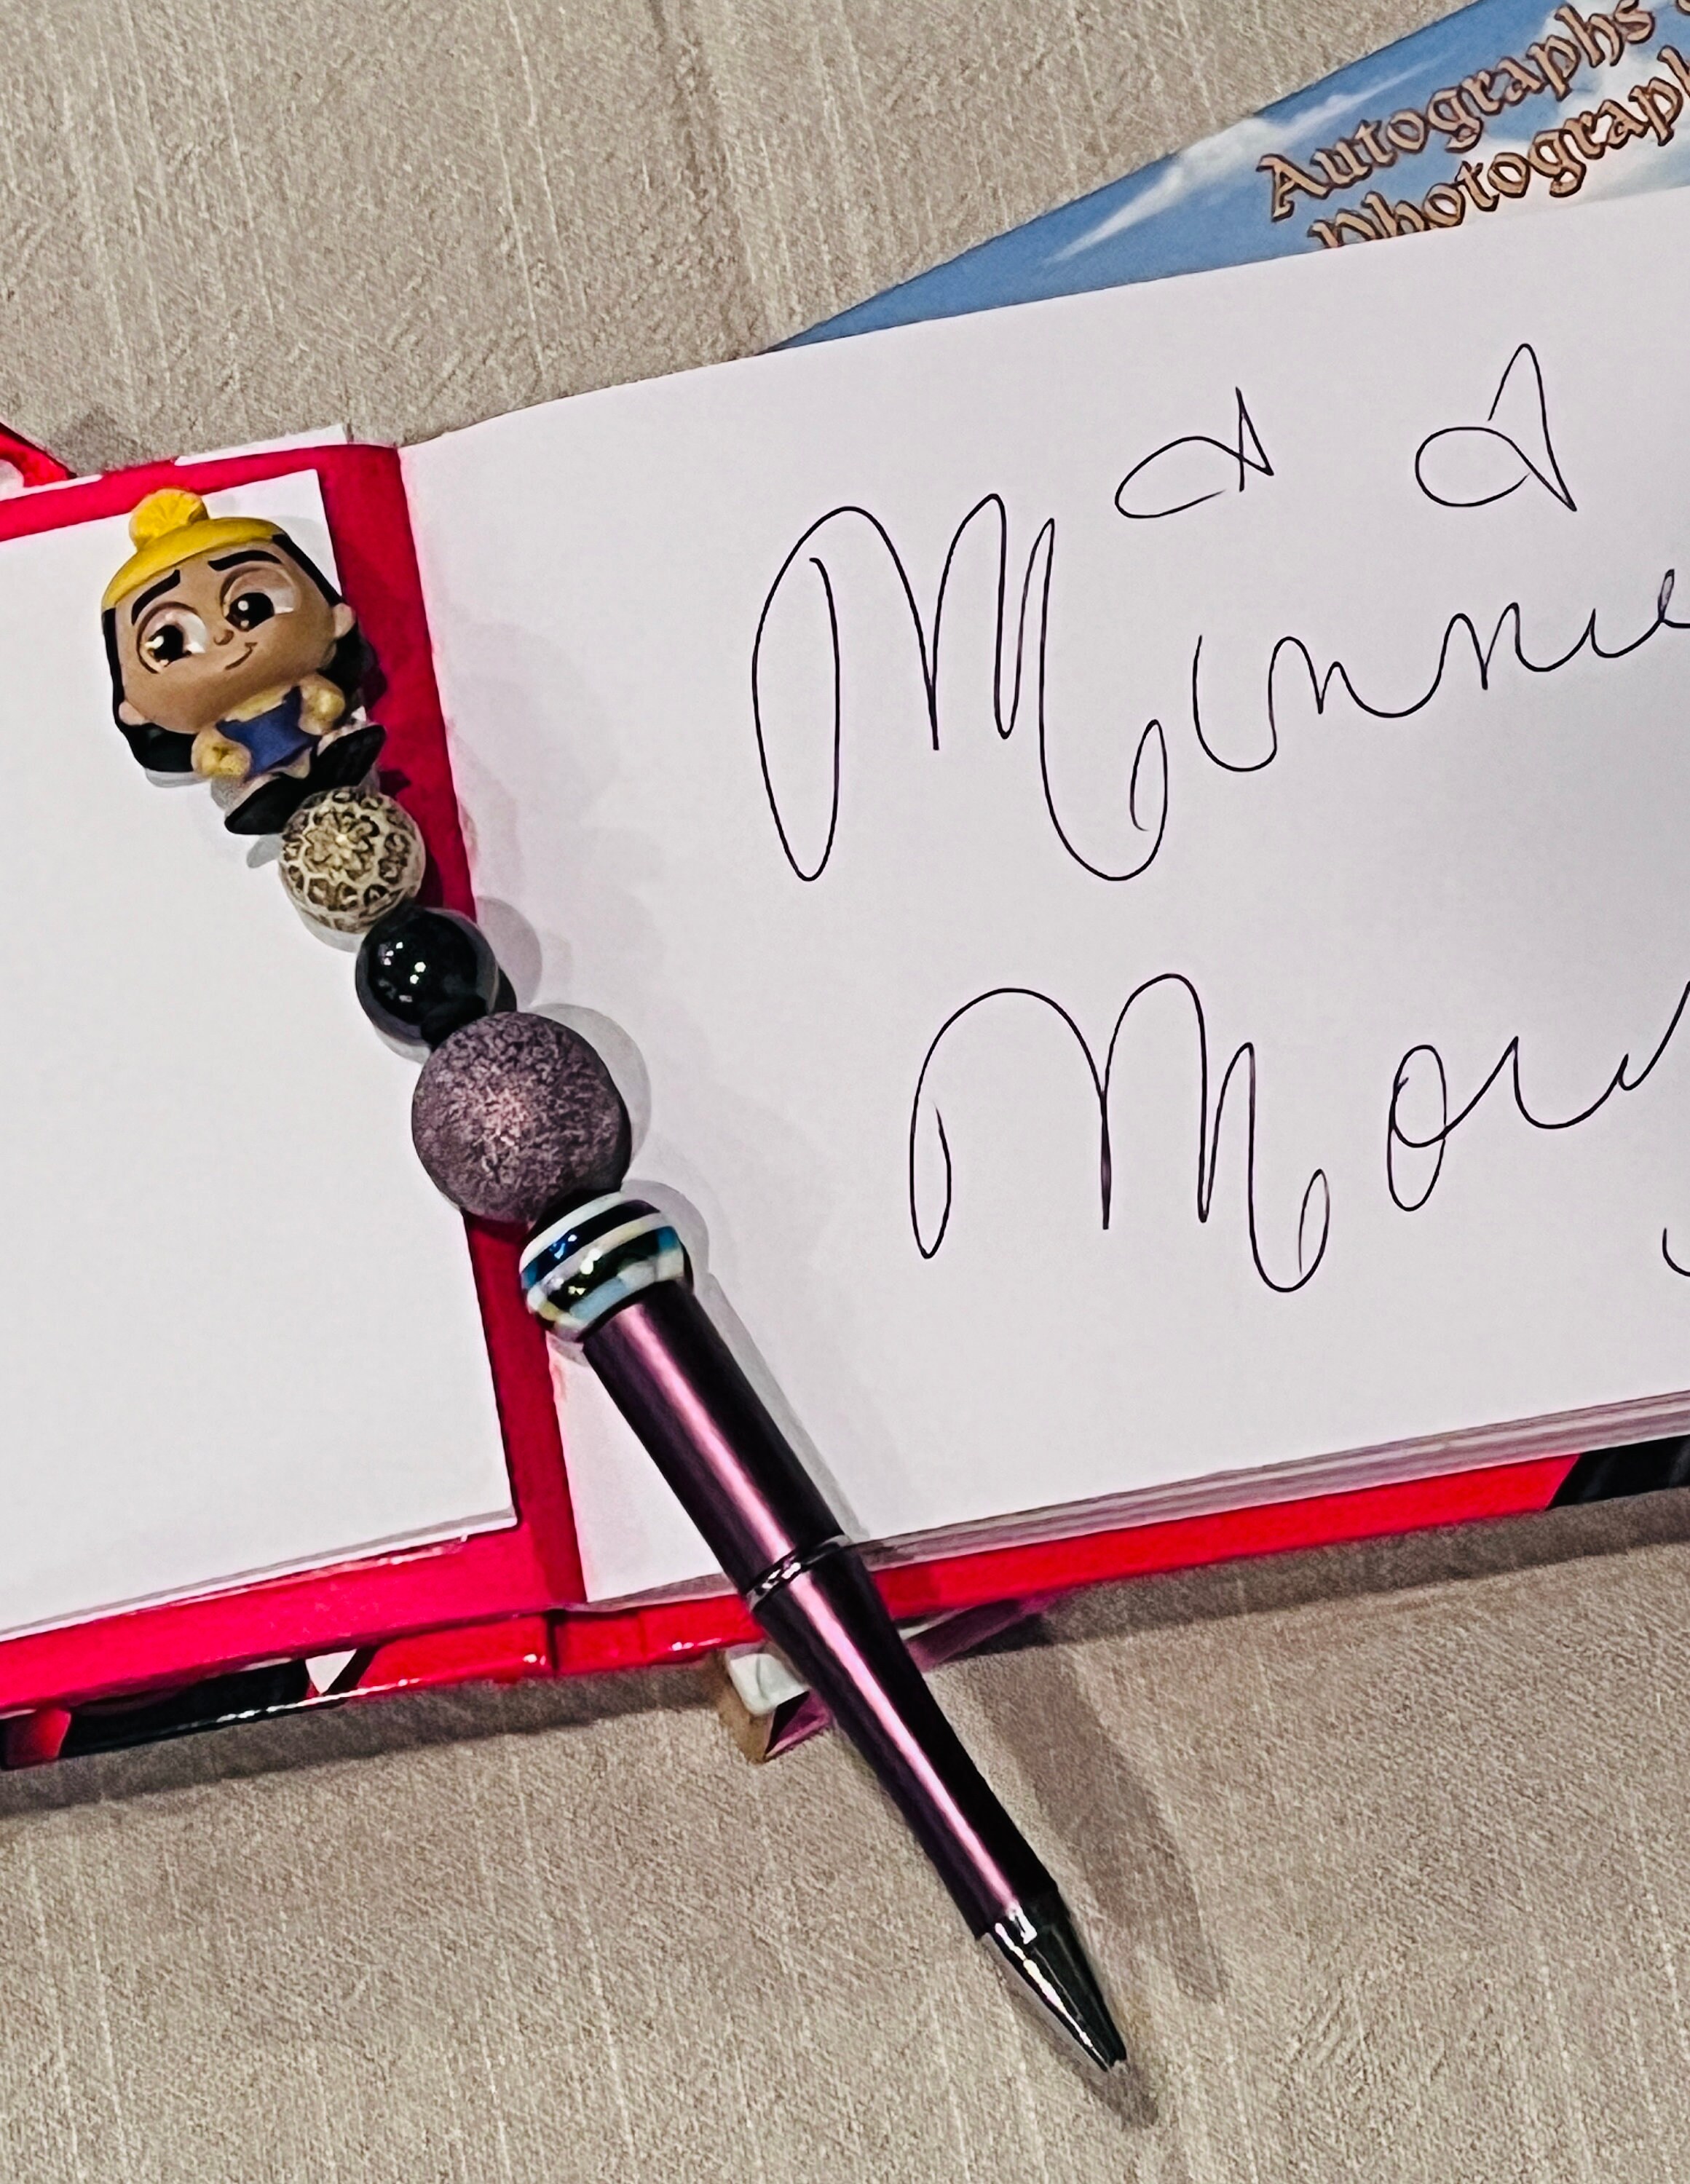 Autographs
Photograph
Minnie
Mou